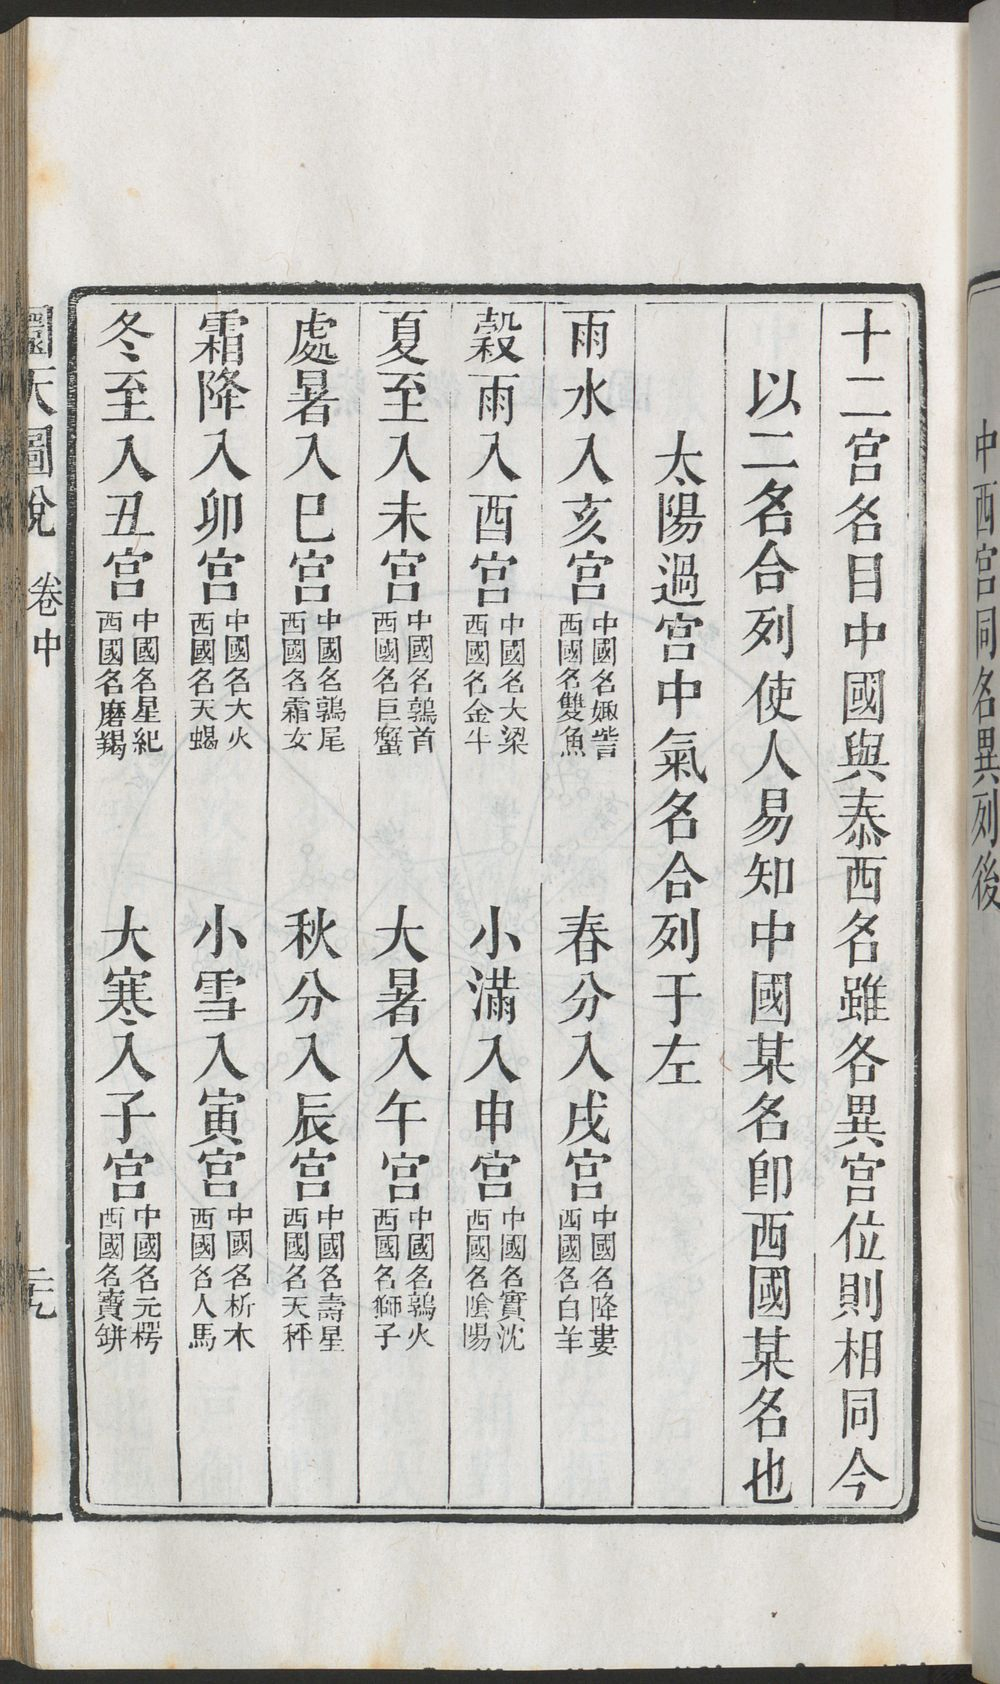 中西宮同名異列後
十二宮名目中國與泰西名雖各異宮位則相同今
以二名合列使人易知中國某名卽西國某名也
太陽過宮中氣名合列于左
雨水入亥宮中國名娵訾西國名雙魚　春分入戌宮中國名降婁西國名白羊
穀雨入酉宮中國名大梁西國名金牛　小滿入申宮中國名實沈西國名陰陽
夏至入未宮中國名鶉首西國名巨蟹　大暑入午宮中國名鶉火西國名獅子
處暑入巳宮中國名鶉尾西國名霜女　秋分入辰宮中國名壽星西國名天秤
霜降入卯宮中國名大火西國名天蝎　小雪入寅宮中國名析木西國名人馬
冬至入丑宮中國名星紀西國名磨羯　大寒入子宮中國名元枵西國名寶缾
圜天圖說　卷中　元